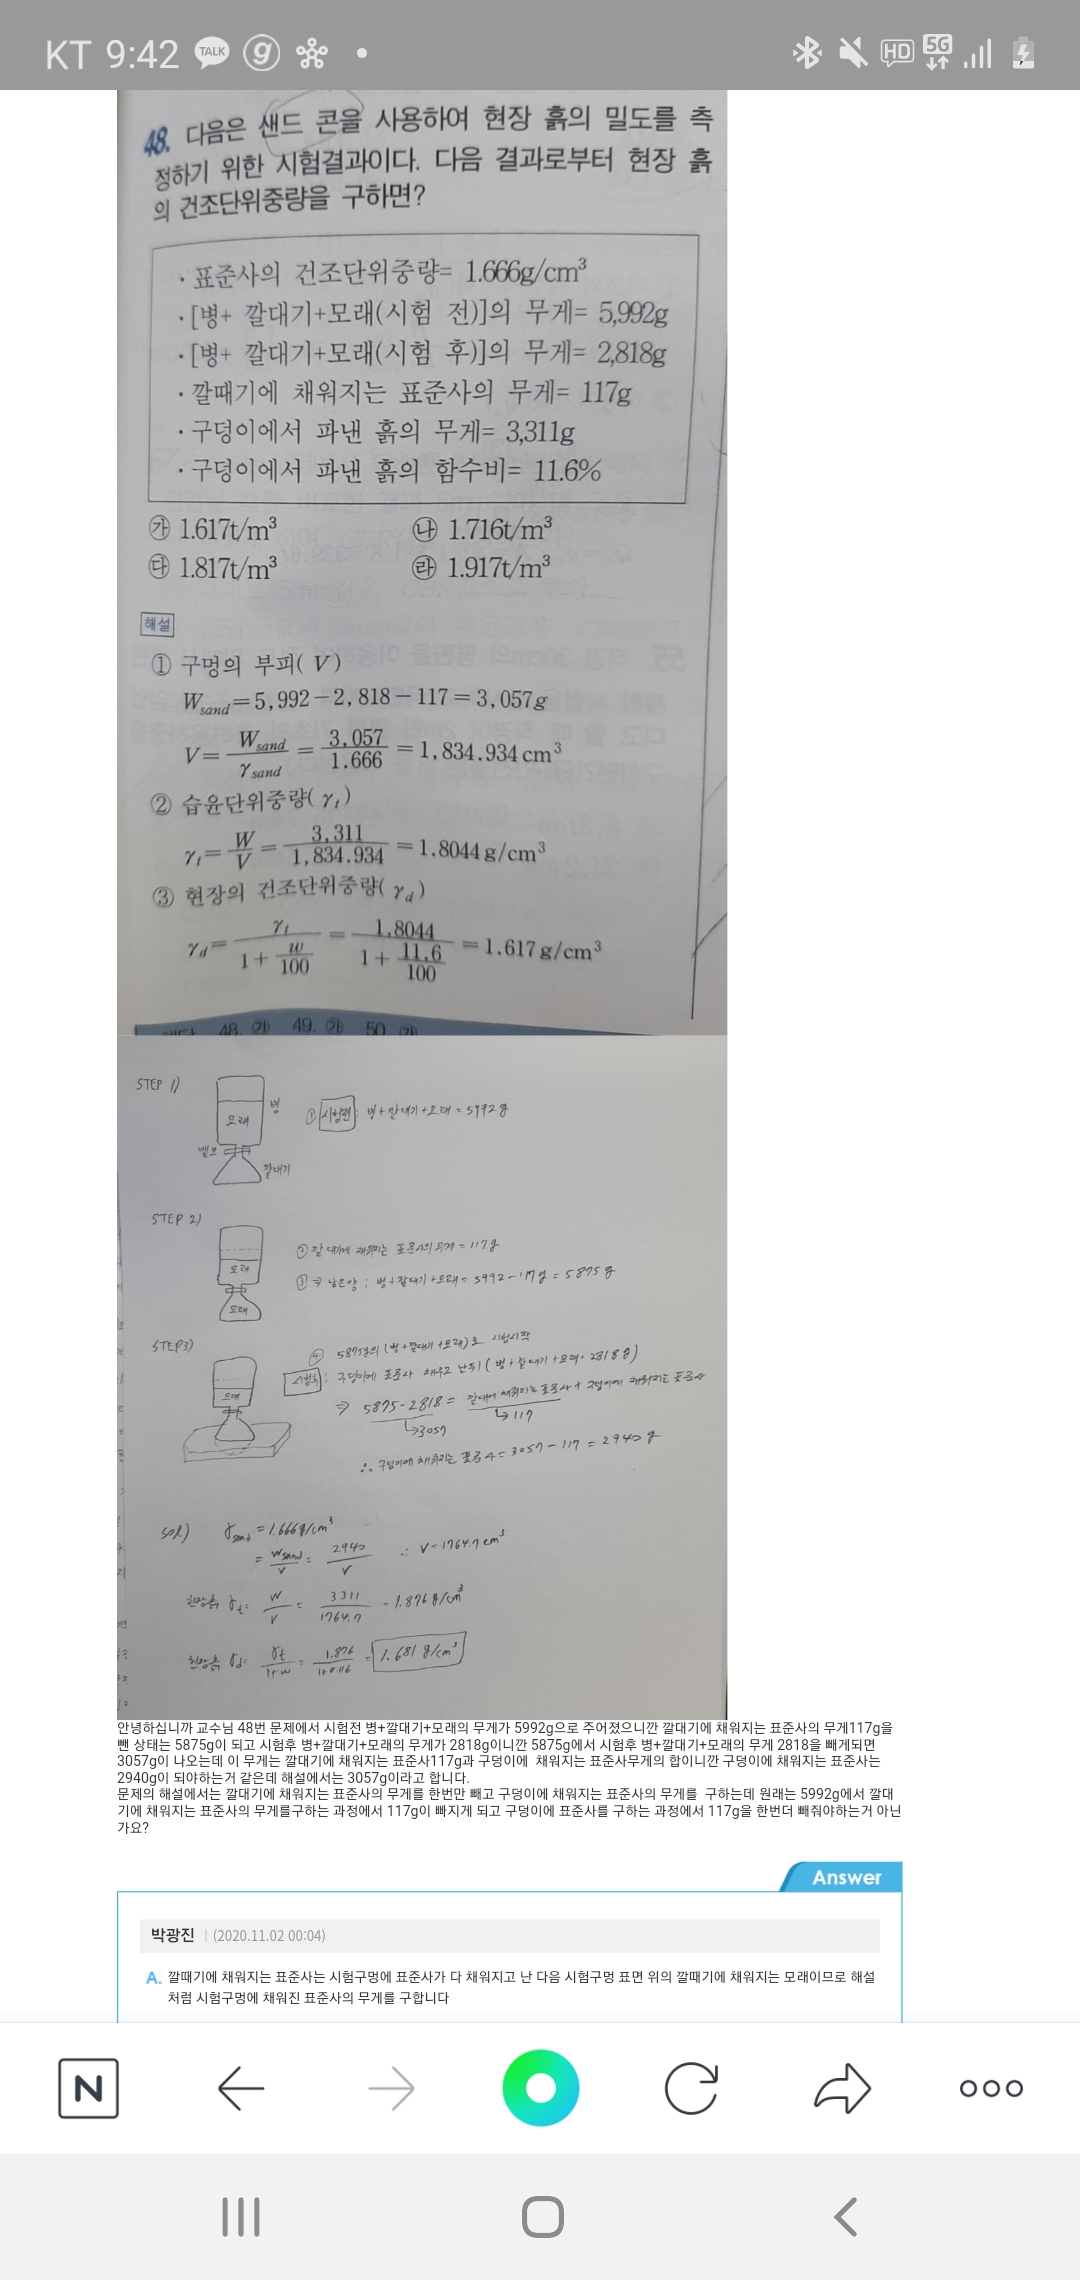 KT 9:42 TALK g HD 5G
48. 다음은 샌드 콘을 사용하여 현장 흙의 밀도를 측
정하기 위한 시험결과이다. 다음 결과로부터 현장 흙
의 건조단위중량을 구하면?
· 표준사의 건조단위중량= 1.666g/cm³
· [병+ 깔대기+모래(시험 전)]의 무게= 5,992g
· [병+ 깔대기+모래(시험 후)]의 무게= 2,818g
· 깔때기에 채워지는 표준사의 무게= 117g
· 구덩이에서 파낸 흙의 무게= 3,311g
· 구덩이에서 파낸 흙의 함수비= 11.6%
㉮ 1.617t/m³ ㉯ 1.716t/m³
㉰ 1.817t/m³ ㉱ 1.917t/m³
해설
① 구멍의 부피( V )
W_sand = 5,992 − 2,818 − 117 = 3,057g
V = W_sand / γ_sand = 3,057 / 1.666 = 1,834.934 cm³
② 습윤단위중량( γ_t )
γ_t = W / V = 3,311 / 1,834.934 = 1.8044 g/cm³
③ 현장의 건조단위중량( γ_d )
γ_d = γ_t / (1 + w/100) = 1.8044 / (1 + 11.6/100) = 1.617 g/cm³
48. ㉮ 49. ㉮ 50. ㉮
STEP 1)
모래 병
밸브
깔대기
① 시험전 : 병+깔대기+모래 = 5992g
STEP 2)
모래
모래
② 깔대기에 채워지는 표준사의 무게 = 117g
③ ⇒ 남은양 : 병+깔대기+모래 = 5992-117g = 5875g
STEP 3)
모래
④ 5875g의 (병+깔대기+모래)로 시험시작
시험후 : 구덩이에 표준사 채우고 난 뒤 (병+깔대기+모래 = 2818g)
⇒ 5875-2818 = 깔대에 채워지는 표준사 + 구덩이에 채워지는 표준사
↳3057 ↳117
∴ 구덩이에 채워지는 표준사 = 3057-117 = 2940g
sol) γ_sand = 1.666g/cm³
= W_sand / V = 2940 / V ∴ V = 1764.7 cm³
현장흙 γ_t = W / V = 3311 / 1764.7 = 1.876 g/cm³
현장흙 γ_d = γ_t / 1+w = 1.876 / 1+0.116 = 1.681 g/cm³
안녕하십니까 교수님 48번 문제에서 시험전 병+깔대기+모래의 무게가 5992g으로 주어졌으니깐 깔대기에 채워지는 표준사의 무게117g을
뺀 상태는 5875g이 되고 시험후 병+깔대기+모래의 무게가 2818g이니깐 5875g에서 시험후 병+깔대기+모래의 무게 2818을 빼게되면
3057g이 나오는데 이 무게는 깔대기에 채워지는 표준사117g과 구덩이에 채워지는 표준사무게의 합이니깐 구덩이에 채워지는 표준사는
2940g이 되야하는거 같은데 해설에서는 3057g이라고 합니다.
문제의 해설에서는 깔대기에 채워지는 표준사의 무게를 한번만 빼고 구덩이에 채워지는 표준사의 무게를 구하는데 원래는 5992g에서 깔대
기에 채워지는 표준사의 무게를구하는 과정에서 117g이 빠지게 되고 구덩이에 표준사를 구하는 과정에서 117g을 한번더 빼줘야하는거 아닌
가요?
Answer
박광진 | (2020.11.02 00:04)
A. 깔때기에 채워지는 표준사는 시험구멍에 표준사가 다 채워지고 난 다음 시험구멍 표면 위의 깔때기에 채워지는 모래이므로 해설
처럼 시험구멍에 채워진 표준사의 무게를 구합니다
N